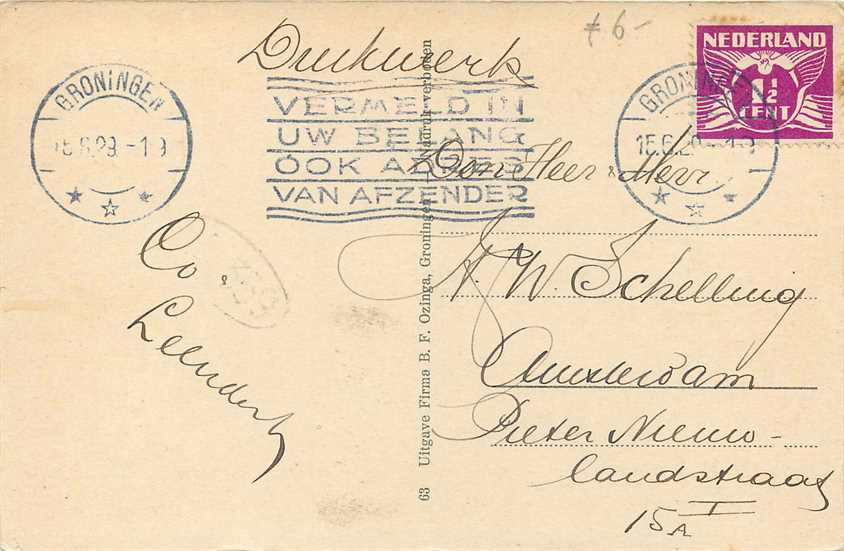 Drukwerk
≠ 6-
NEDERLAND
1½
CENT
GRONINGEN
15.6.29.-19
VERMELD IN
UW BELANG
OOK ADRES
VAN AFZENDER
GRONINGEN
15.6.29.-19
Den Heer & Mevr
A. W. Schelling
Amsterdam
Pieter Nieuw-
landstraat
15A I
Co &
Leendert
63 Uitgave Firma B. F. Ozinga, Groningen Nadruk verboden